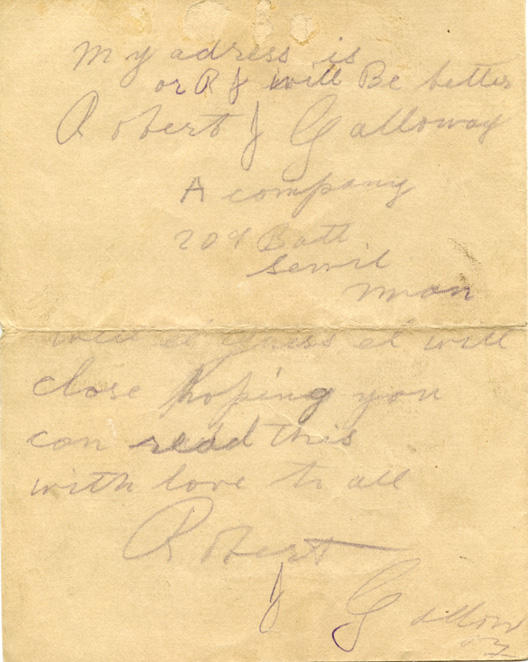 My adress is
or R J will Be better
Robert J Galloway
A company
209 Batt
Sewil
man
well i guess i will
close hoping you
can read this
with love to all
Robert
J Gallow
ay